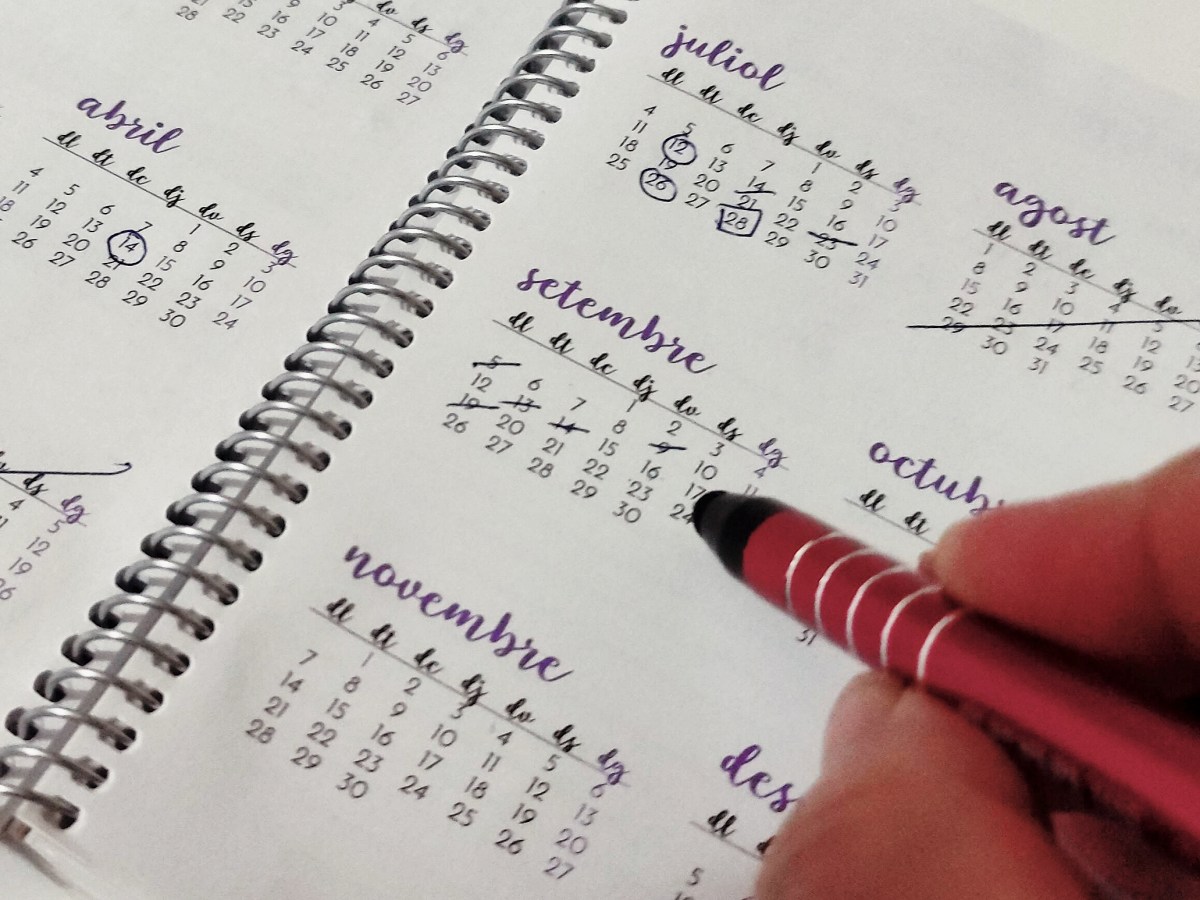 dv ds dg
3 4 5 6
9 10 11 12 13
15 16 17 18 19 20
21 22 23 24 25 26 27
28
abril
dl dt dc dj dv ds dg
1 2 3
4 5 6 7 8 9 10
11 12 13 14 15 16 17
18 19 20 21 22 23 24
26 27 28 29 30
ds dg
4 5
11 12
19
26
juliol
dl dt dc dj dv ds dg
1 2 3
4 5 6 7 8 9 10
11 12 13 14 15 16 17
18 19 20 21 22 23 24
25 26 27 28 29 30 31
agost
dl dt dc dj dv
1 2 3 4 5
8 9 10 11 12 13
15 16 17 18 19 20
22 23 24 25 26 27
29 30 31
setembre
dl dt dc dj dv ds dg
1 2 3 4
5 6 7 8 9 10 11
12 13 14 15 16 17
19 20 21 22 23 24
26 27 28 29 30
octub
dl dt
31
novembre
dl dt dc dj dv ds dg
1 2 3 4 5 6
7 8 9 10 11 12 13
14 15 16 17 18 19 20
21 22 23 24 25 26 27
28 29 30
des
dl
5